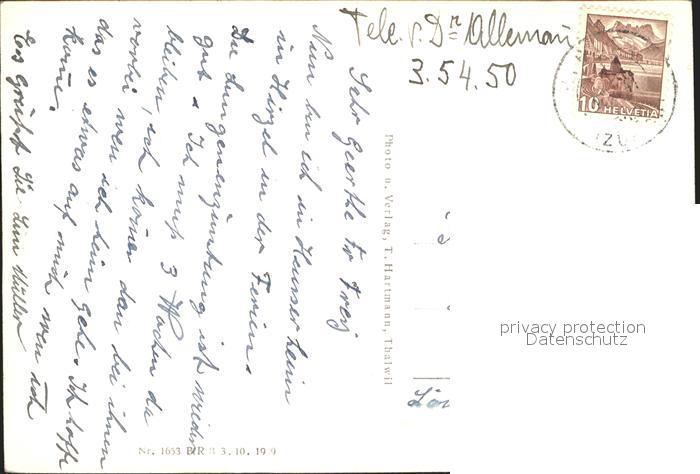 Tele. v. Dr Alleman
3.54.50
10 HELVETIA
Sehr Geerthe Fr Frey
Nun bin ich in Hausser heim
in Hirzel in der Ferien.
Die Lungenenzüntung ist wieder
gut. Ich muss 3 Wochen da
bleiben, ich komer dan bei ihnen
vorbei wen ich heim gehe. Ich hoffe
das es etwas auf mich wen ich
kome.
Es grüsst Sie Lini Müller
Photo u. Verlag, T. Hartmann, Thalwil
Nr. 1653 BRB 3. 10. 1939
privacy protection
Datenschutz